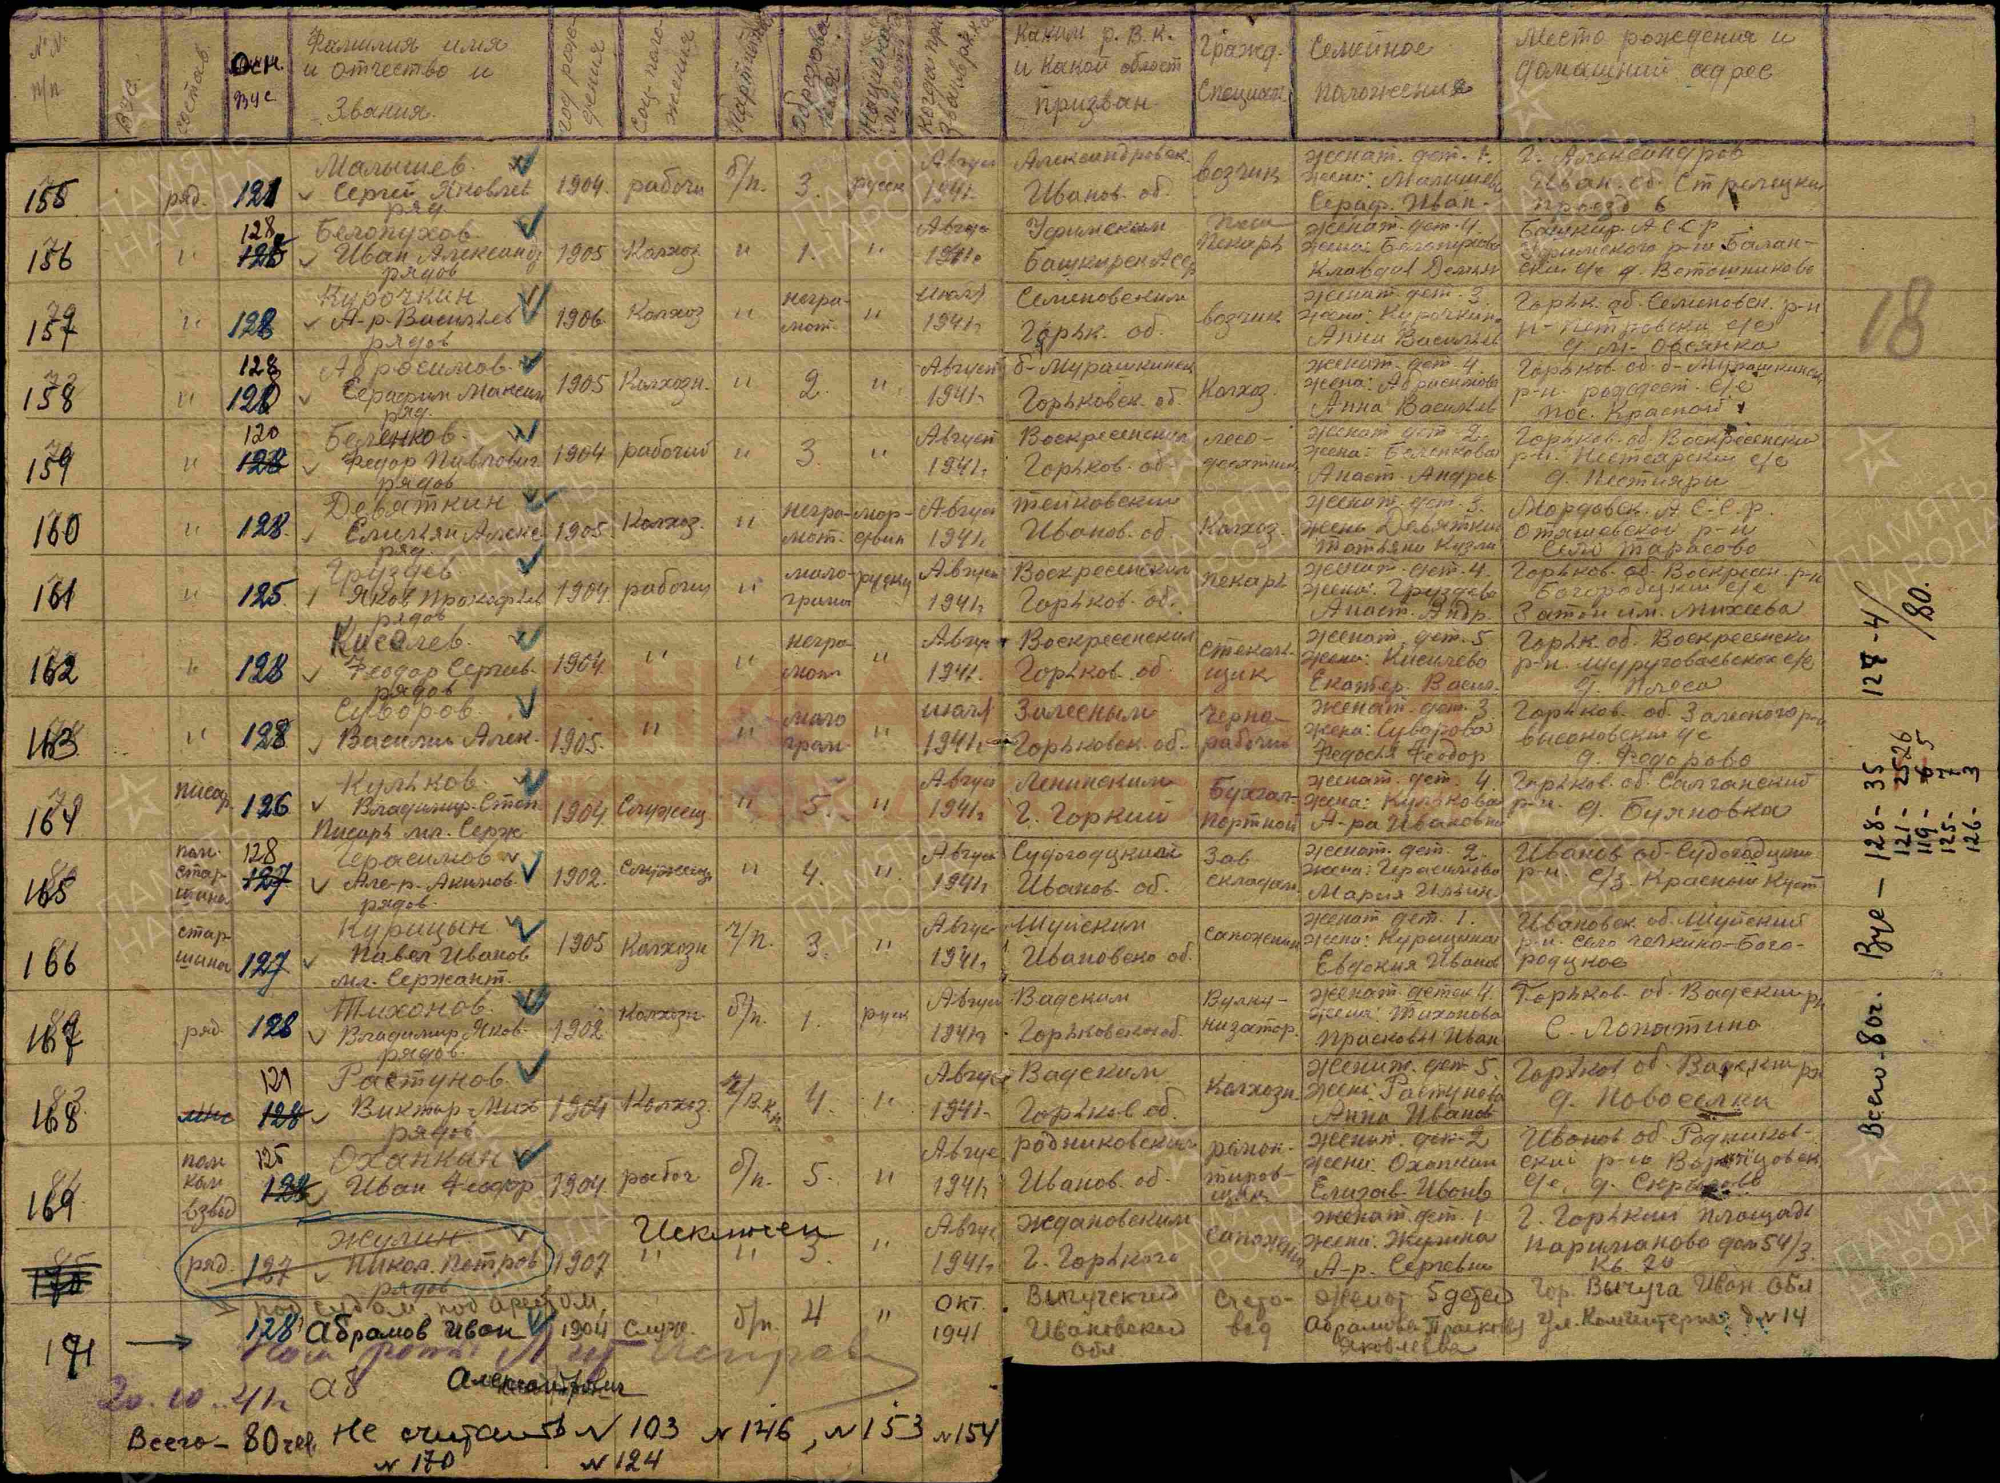 № № п/п
ВУС
состав
Осн. вус
Фамилия имя и отчество и Звания.
год рождения
Соц. положения
Партийн.
Образования
Национальность
Когда призван
Каким р.В.К. и какой област призван
Гражд. Специал.
Семейное положения
Место рождения и домашний адрес
155 ряд. 121 Малышев Сергей Яковлев ряд 1904 рабочи б/п. 3. русск Август 1941 Александровск. Иванов. об. возчик женат. дет. 1. жена: Малышева Сераф. Иван- г. Александров Иван. об. Стрелецкий проезд 6
156 " 128 125 Белопухов Иван Александ рядов 1905 Колхоз " 1. " Август 1941 Уфимским Башкирск АССР Пекарь женат. дет. 4. жена: Белопухова Клавдия Башкир. АССР Уфимского р-на
157 " 128 Курочкин А-р. Васильев рядов 1906 Колхоз " негра- мот. " июль 1941г Семеновским Горьк. об. возчик женат. дет. 3. жена: Курочкина Анна Васильев Горьк. об. Семеновск. р-н п-Петровски с/с д. М-Овсянка
158 " 128 128 Абросимов Серафим Максим ряд. 1905 Колхозн. " 2. " Август 1941г б-Мурашкинск Горьковск. об. Колхоз. женат. дет. 4. жена: Абросимова Анна Васильев Горьков. об. б-Мурашкинск р-н. пос. Красной
159 " 120 128 Беленков Федор Павлович рядов 1904 рабочий " 3. " Август 1941г Воскресенским Горьков. об. лесо- десятник женат дет. 2. жена: Беленкова Анаст. Андрев Горьков. об. Воскресенски р-н. д. Нестияри
160 " 128 Девяткин Емельян Алексе ряд. 1905 Колхоз. " негра- мот. мор- двин Август 1941г тейковский Иванов. об. Колхоз. женат. дет. 3. жена Девяткин Татьяна Кузм Мордовск. А.С.С.Р. село Тарасово
161 " 125 Груздев Яков Прокофьев рядов 1904 рабочий " мало- грамот русски Август 1941г Воскресенским Горьков. об. пекарь женат. дет. 4. жена: Груздева Анаст. Андр. Горьков. об. Воскресен. р-н Богородцкий с/с Затон им. Михеева
162 " 128 Киселев Феодор Сергеев. рядов 1904 " " негра- мот " Август 1941г Воскресенским Горьков. об. стеколь- щик женат. дет. 5 жена: Киселева Екатер. Васил. Горьк. об. Воскресенски р-н. д. Плеса
163 " 128 Суворов Василь Алек. 1905 " " мало грам- " июль 1941г Залесным Горьковск. об. черно- рабочий женат. дет. 3 жена: Суворова Федосья Феодор Горьков. об. Залесного р-н высоковский с/с д. Федорово
164 писар. 126 Кульков Владимир. Степ. Писарь мл. Серж 1904 Служащ " 5. " Август 1941г Ленинским г. Горкий Бухгал- женат. дет. 4. жена: Кулькова А-ра Ивановна Горьков. об. Салганский р-н. д. Буяновка
165 пом. стар- шина 128 127 Герасимов Але-р. Акимов. рядов 1902 Служащ. " 4. " Август 1941г Судогодцкий Иванов. об. Зав складам. женат. дет. 2. жена: Герасимова Мария Ильин. Иванов об. Судогодцкий р-н. с/з. Красный Куст
166 стар- шина 127 Курицын Павел Иванов мл. Сержант. 1905 Колхозн ч/п. 3. " Август 1941г Шуйским Ивановско об. сапожник женат дет. 1. жена: Курицина Евдокия Иванов Ивановск. об. Шуйский р-н. село Чечкино-Бого- родцкое
167 ряд. 128 Тихонов Владимир Яков. рядов. 1902 Колхозн. б/п. 1. русск Август 1941г Вадским Горьковской об. Вулка- низатор. женат. детей 4. жена: Тихонова Прасковя Иван Горьков. об. Вадский рн с. Лопатино
168 мкс 121 128 Растунов Виктор Мих рядов 1904 Колхоз. ч/в.к.п. 4. " Август 1941г Вадским Горьков об. Колхозн. женат. дет. 5 жена: Растунова Анна Иванов Горьков об. Вадским рн д. Новоселки
169 пом ком взвод 125 128 Охапкин Иван Феодор 1904 рабоч б/п. 5. " Август 1941г родниковский Иванов. об. женат. дет-2 жена: Охапкин Елизав. Иванв Иванов об Родников- ский р-на с/с. д. Скрылово
170 ряд. 127 Жулин Никол. Петров рядов 1907 Исключен " " 3. " Август 1941г Ждановским г. Горького сапожник женат. дет. 1 жена: Жулина А-р. Сергевна г. Горький площадь Нариманова дом 54/3. кв. 20
под судом, под арестом,
171 128 Абрамов Иван Александрович 1904 служ. б/п. 4 " Окт. 1941 Вычугский Ивановской обл. Счето- вод женат 5 детей Абрамова Прасковя Яковлевна Гор. Вычуга Иван Обл Ул. Коминтерна д №14
20.10.41г
Всего - 80 чел. Не считать № 103 № 146, № 153 № 154
№ 170 № 124
18
Всего - 80ч. Вус - 128 - 35 127 - 4/80.
121 - 25 26
119 - 6 5
125 - 7
126 - 3
ПАМЯТЬ НАРОДА